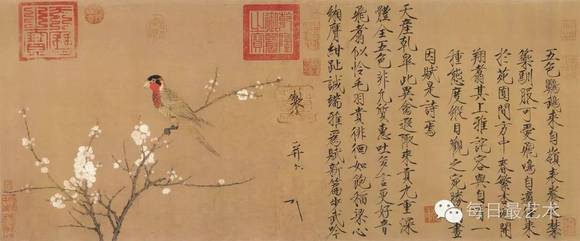 五色鸚鵡來自嶺表養之禁
籞馴服可愛飛鳴自適往來
於苑囿間方中春繁杏遍開
翔翥其上雅詫容與自有一
種態度縱目觀之宛勝圖畫
因賦是詩焉
天產乾皋此異禽遐陬來貢九重深
體全五色非凡質惠吐多言更好音
飛翥似憐毛羽貴徘徊如飽稻粱心
緗膺紺趾誠端雅為賦新篇步武吟
製
并
每日最艺术